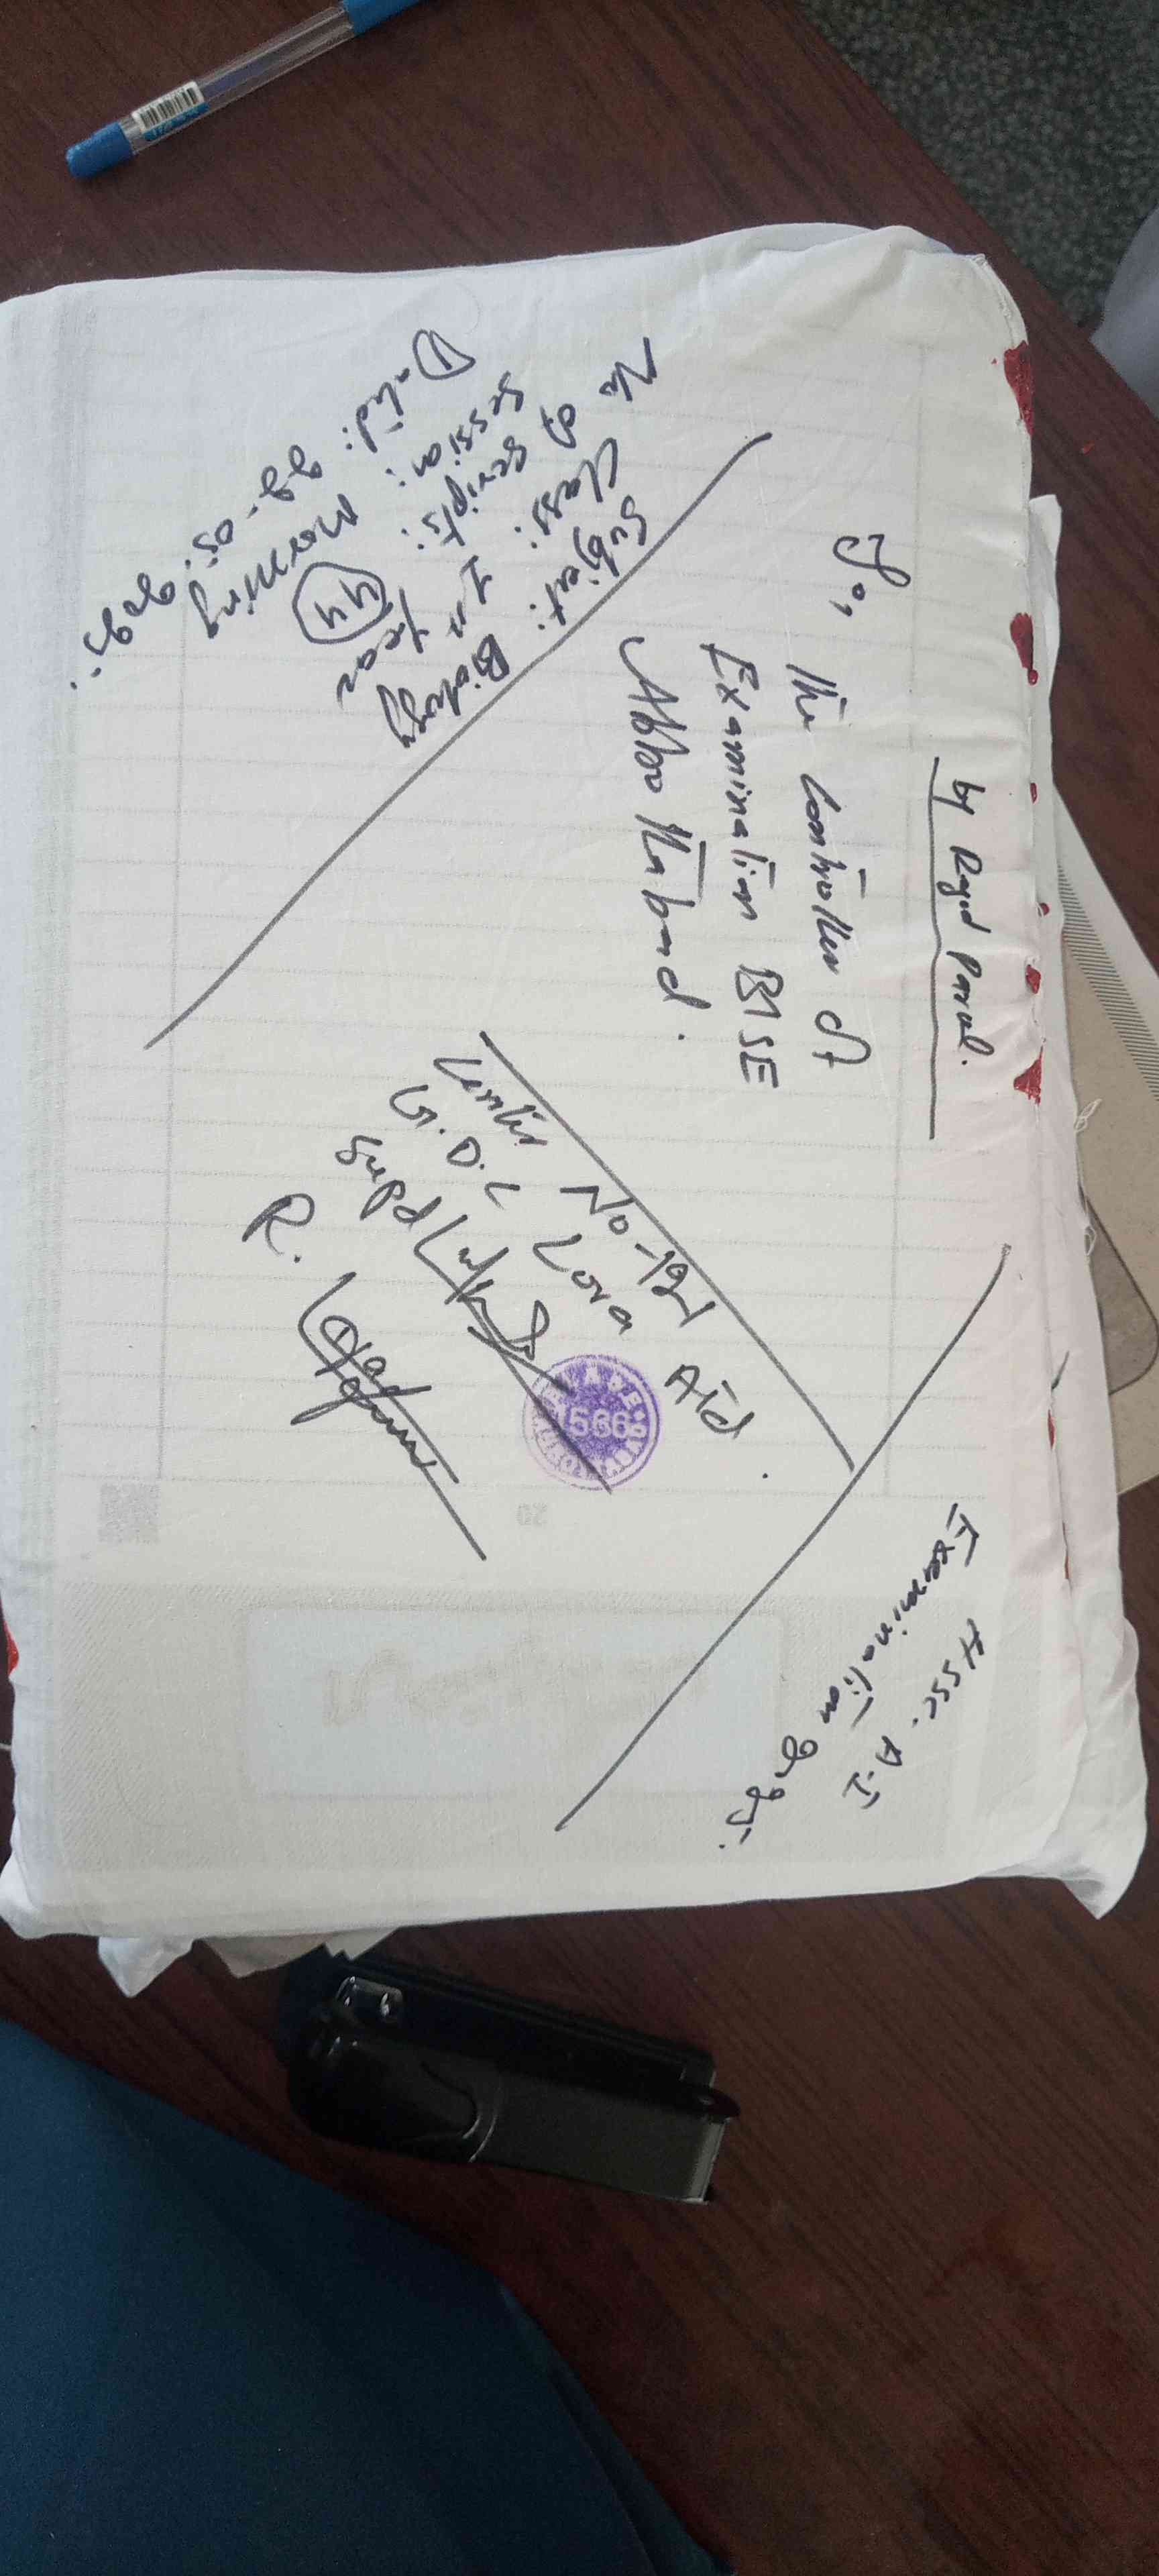 by Regd Parcel.
To,
The Controller of
Examination BISE
Abbottabad.
Subject: Biology
Class: 1st year
No of Scripts: 44
Session: Morning
Dated: 22-05-2025.
HSSC. A-I
Examination 2025.
No-191
G.D.C Lora Atd.
Supdt
R.
1566
20